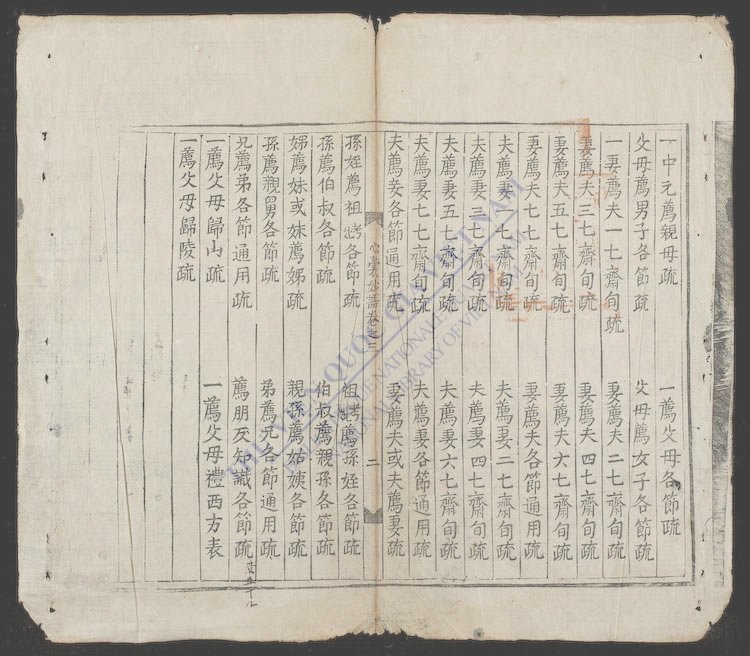 一中元薦親母疏 一薦父母各節疏
父母薦男子各節疏 父母薦女子各節疏
一妻薦夫一七齋旬疏 妻薦夫二七齋旬疏
妻薦夫三七齋旬疏 妻薦夫四七齋旬疏
妻薦夫五七齋旬疏 妻薦夫六七齋旬疏
妻薦夫七七齋旬疏 妻薦夫各節通用疏
夫薦妻一七齋旬疏 夫薦妻二七齋旬疏
夫薦妻三七齋旬疏 夫薦妻四七齋旬疏
夫薦妻五七齋旬疏 夫薦妻六七齋旬疏
夫薦妻七七齋旬疏 夫薦妻各節通用疏
夫薦妾各節通用疏 妻薦夫或夫薦妻疏
心囊妙語卷之三 二
孫姪薦祖妣考各節疏 祖妣考薦孫姪各節疏
孫薦伯叔各節疏 伯叔薦親孫各節疏
姊薦妹或妹薦姊疏 親孫薦姑姨各節疏
孫薦親舅各節疏 弟薦兄各節通用疏
兄薦弟各節通用疏 薦朋友知識各節疏
一薦父母歸山疏 一薦父母禮西方表
一薦父母歸陵疏
THƯ VIỆN QUỐC GIA VIỆT NAM
NATIONAL LIBRARY OF VIETNAM